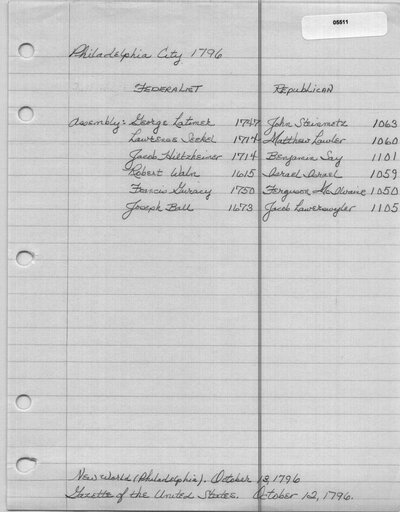 05511
Philadelphia City 1796
FEDERALIST REPUBLICAN
Assembly: George Latimer 1747 John Steinmetz 1063
Lawrence Seckel 1714 Matthew Lawler 1060
Jacob Hiltzheimer 1714 Benjamin Say 1101
Robert Waln 1615 Israel Israel 1059
Francis Gurney 1750 Ferguson McIlvaine 1050
Joseph Ball 1673 Jacob Lawerswyler 1105
New World (Philadelphia). October 13, 1796
Gazette of the United States. October 12, 1796.